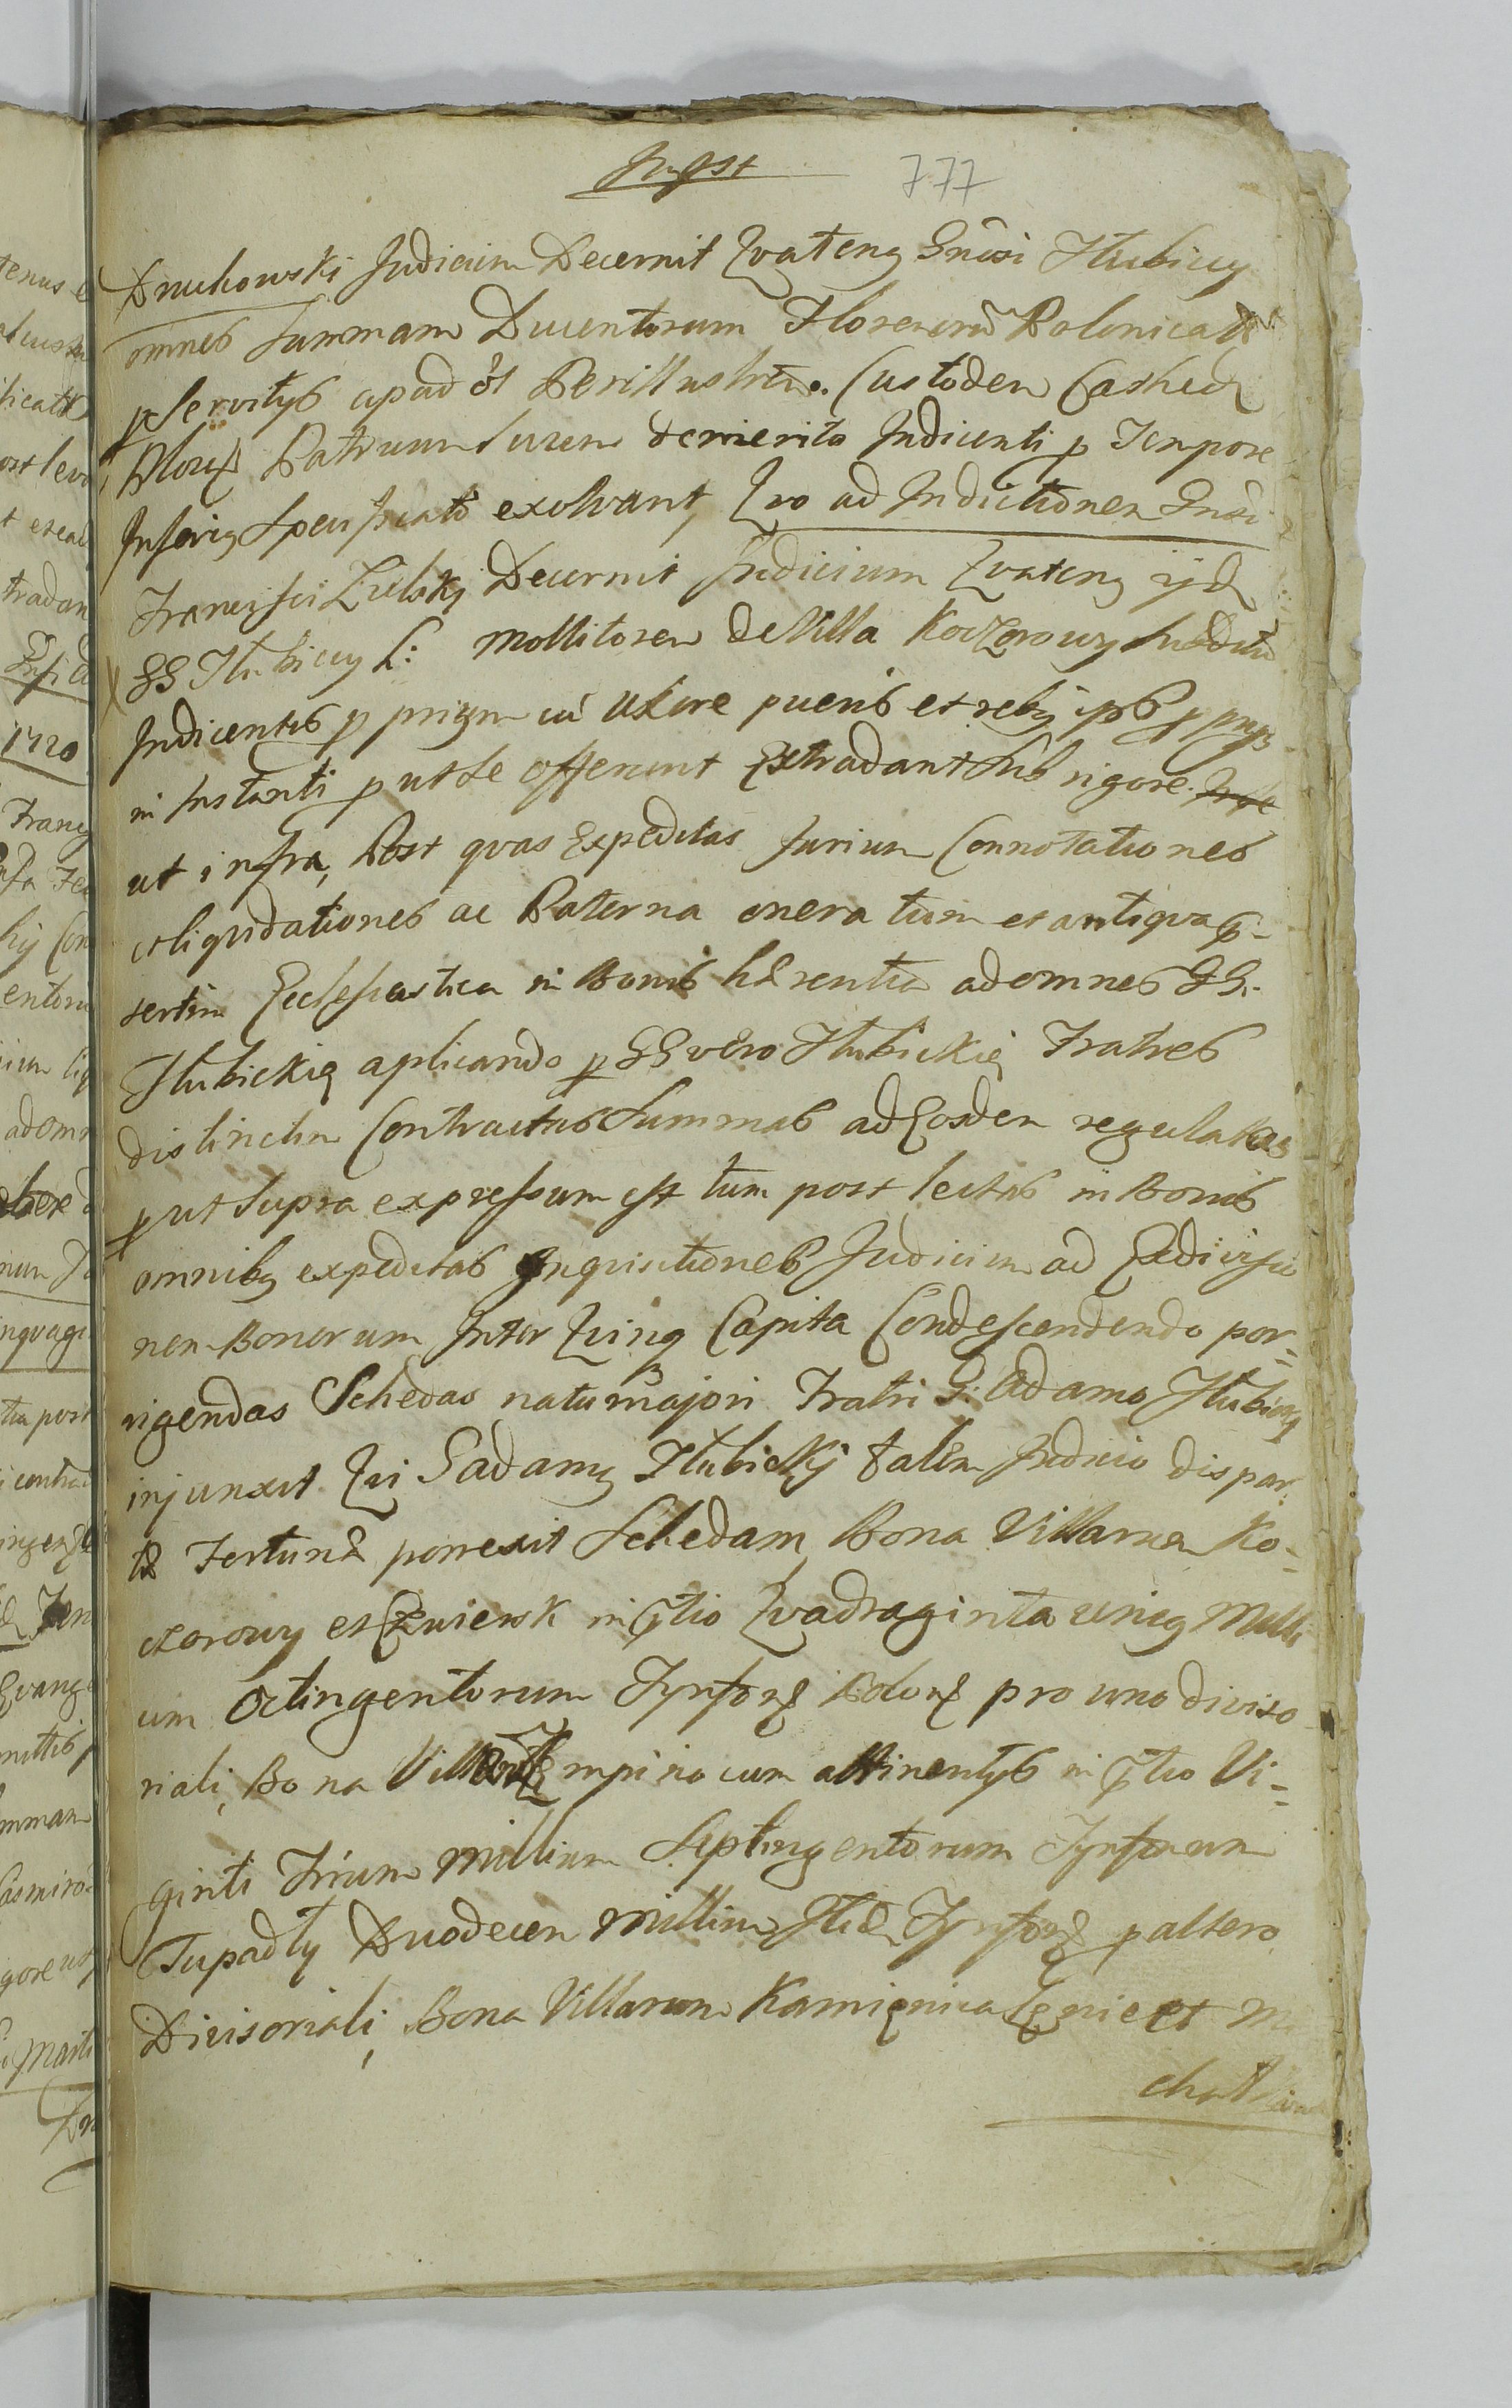 777
Druchowski Judicium Decernit Qvateng Gnõsi Hlubiccy
omnes Summam Ducentorum Florenorũ Polonical
p servitÿs apud ol Perillustrem Custodem Cathed
Ploceñ Patruum Suum demerito Indicenti p Tempore
Inferig Specificato exolvant, Qvo ad Indictionem Gnõsi
Francisci Zielskj Decernit Judicium Qvateng ijd
GG Hlubiccy L: mollitorem de Villa Koczorowy Subditũ
Indicentis p prigm cũ uxore pueris et rebg ipõs
in Instanti p ut se offerent Extradant sub rigore
ut infra, Post qvas Expeditas Jurium Connotationes
et liqvidationes ac Paterna onera tum et antiqva p-
sertim Ecclesiastica in Bonis hærentia ad omnes GG.
Hlubickię aplicando p GG vero Hlubickię Fratres
distinctim Contractas Summas ad Eosdem regulatas
p ut Supra expressum est tum post lectas in Bonis
omnibg expeditas Inqvisitiones Judicium ad Endivisio
nem Bonorum Inter Qvinq Capita Condescendendo por=
rigendas Schedas natu majori Fratri G: Adamo Hlubicky
injunxit Qvi G Adamg Hlubickÿ talem Judicio dispar=
tæ Fortunæ porrexit Schedam, Bona Villarum Ko=
czorowy et Cwiersk in ptio Qvadraginta uniq Milli
um Octingentorum Tynforꝝ Poloꝝ pro uno diviso
riali, Bona mpino cum attinentÿs in ptio Vi=
ginti Trium millium Septingentorum Tynforum
Tupadły Duodecem millium Tynforꝝ p altero
Divisoriali, Bona Villarum Kamięnica et